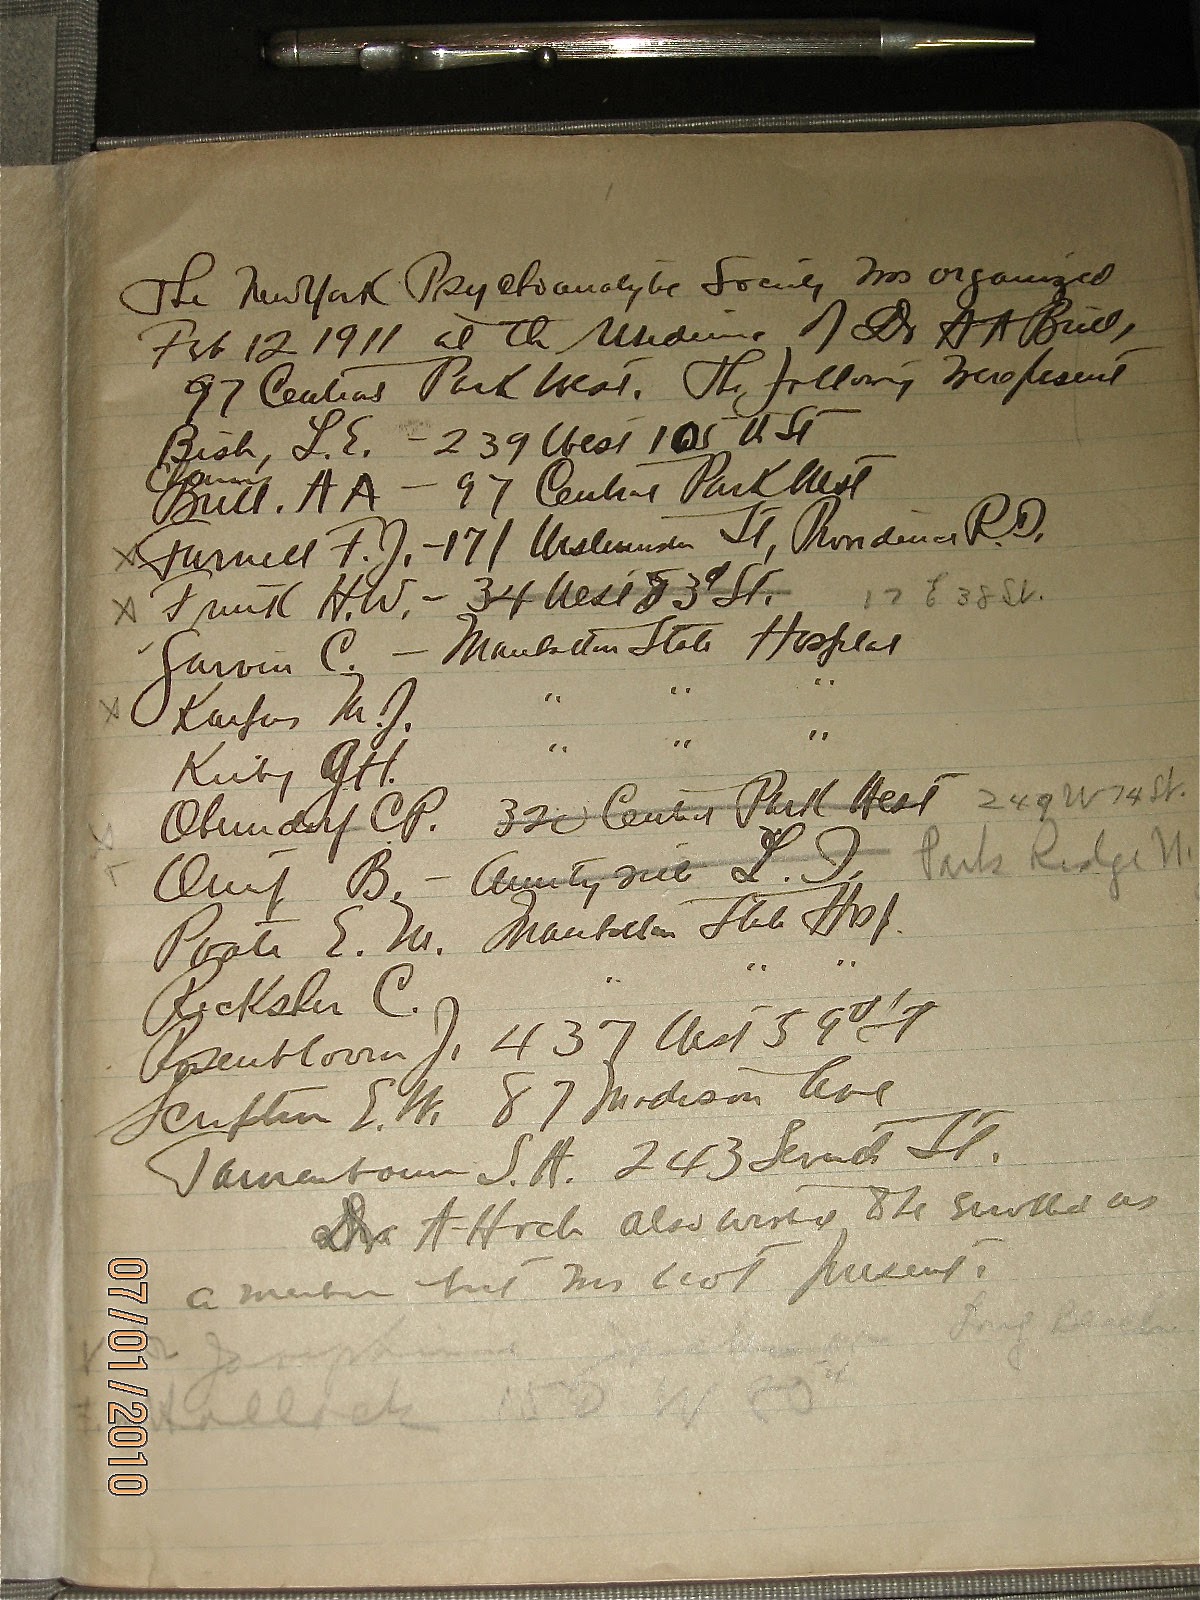 The New York Psychoanalytic Society was organized
Feb 12 1911 at the residence of Dr A A Brill,
97 Central Park West. The following were present
Bish, L.E. - 239 West 105th St
Brill. A A - 97 Central Park West
X Farnell F. J. - 171 Westminster St, Providence R.I.
X Frink H.W. - 34 West 83d St. 17 E 38 St.
Garvin C. - Manhattan State Hospital
X Karpas M. J. " " "
Kirby G H. " " "
Oberndorf C.P. 320 Central Park West 249 W 74 St.
Onuf B. - Amityville L. I. Park Ridge N.
Poate E. M. Manhattan State Hosp.
Ricksher C. " " "
Rosenbloom J. 437 West 59th St
Scripture E.W. 87 Madison Ave
Tannenbaum S. A. 243 Seventh St.
Dr A Hoch also wished to be enrolled as
a member but was not present.
Josephine Long Beach
Hallock 150 W 80th
07/01/2010